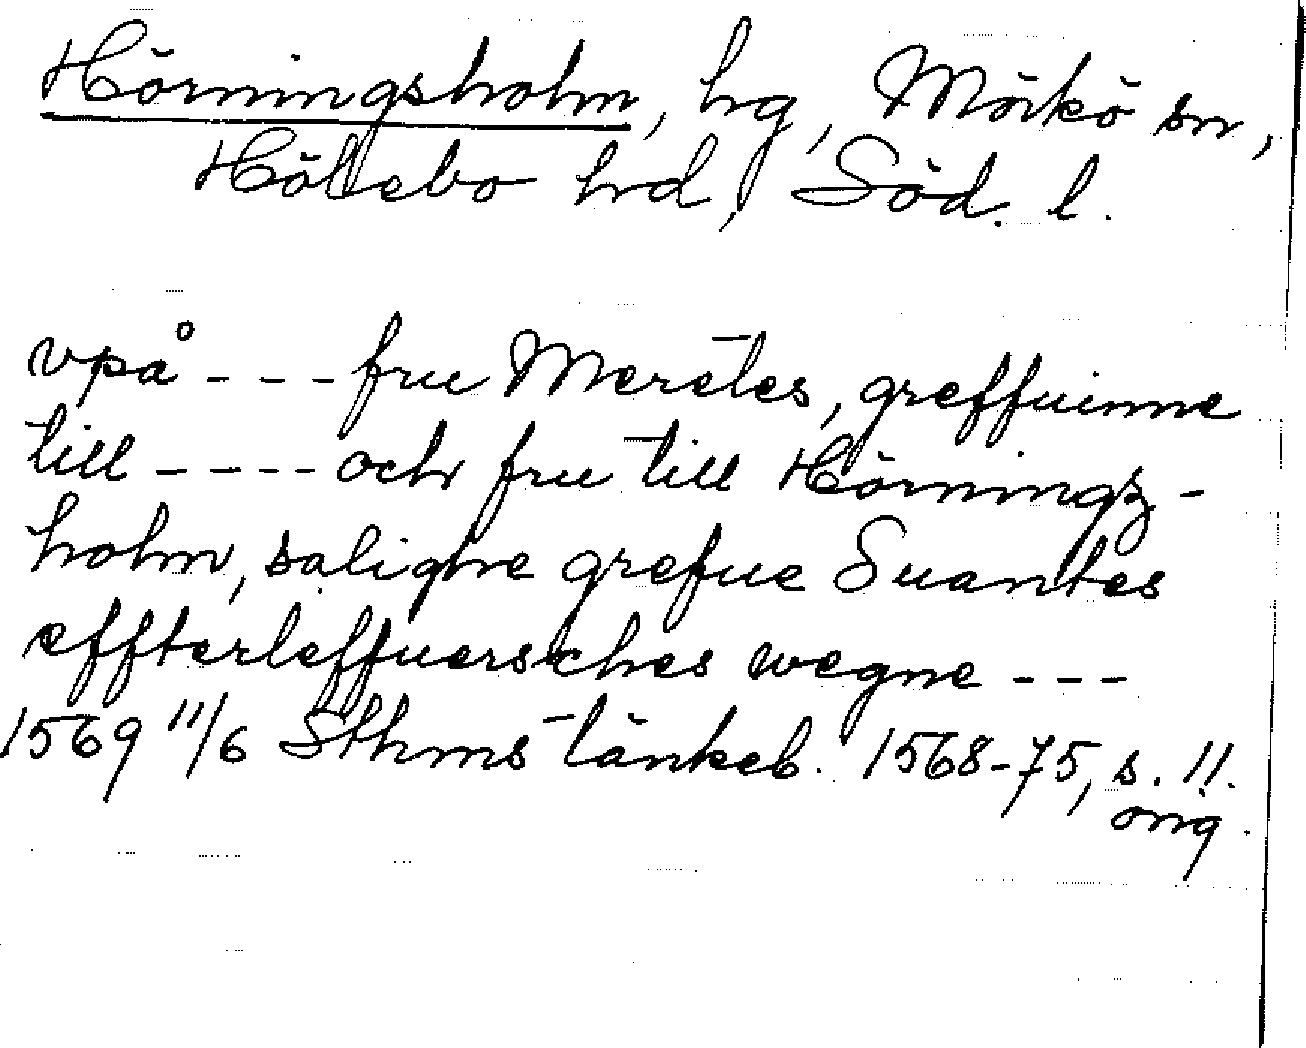 Hörningsholm, hg, Mörkö sn,
Hölebo hrd, Söd. l.
vpå --- fru Meretes, greffuinne
till ---- och fru till Hörningz-
holm, salighe grefue Suantes
effterleffuersches wegne ---
1569 11/6 Sthms tänkeb. 1568-75, s. 11.
orig.